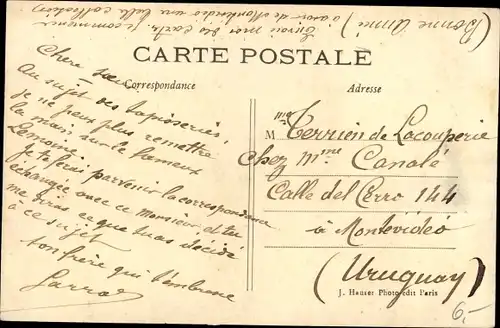 (Bonne Année) j'avais de Montevideo une belle collection
Envoi moi des cartes, je commence
CARTE POSTALE
Correspondance
Adresse
Chère sœur
Au sujet des tapisseries,
je ne peux plus remettre
la main sur le fameux
Lemoine.
Je te ferai parvenir la correspondance
échangée avec ce Monsieur, et tu
me diras ce que tu as décidé
à ce sujet.
ton frère qui t'embrasse
Mme Terrien de Lacouperie
Chez Mme Canalé
Calle del Cerro 144
à Montevidéo
(Uruguay)
J. Hauser Photo-édit Paris
6.-